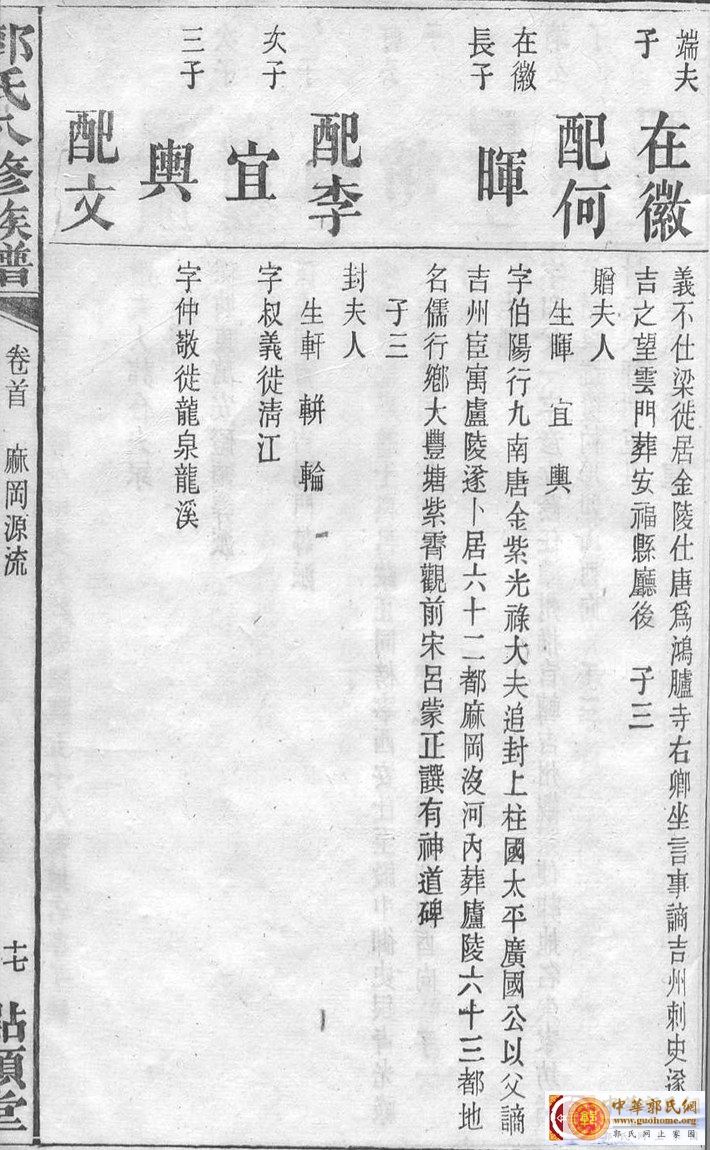 端夫
子
在徽
義不仕梁徙居金陵仕唐爲鴻臚寺右卿坐言事謫吉州刺史遂
吉之望雲門葬安福縣廳後 子三
配何
贈夫人
生暉 宜 輿
在徽
長子
暉
字伯陽行九南唐金紫光祿大夫追封上柱國太平廣國公以父謫
吉州宦寓廬陵遂卜居六十二都麻岡沒河內葬廬陵六十三都地
名儒行鄉大豐塘紫霄觀前宋呂蒙正譔有神道碑
子三
配李
封夫人
生軒 輧 輪
次子
宜
字叔義徙淸江
三子
輿
字仲敬徙龍泉龍溪
配文
郭氏 修族譜
卷首 麻岡源流
十七
中華郭氏網
www.guohome.org
郭氏网上家园